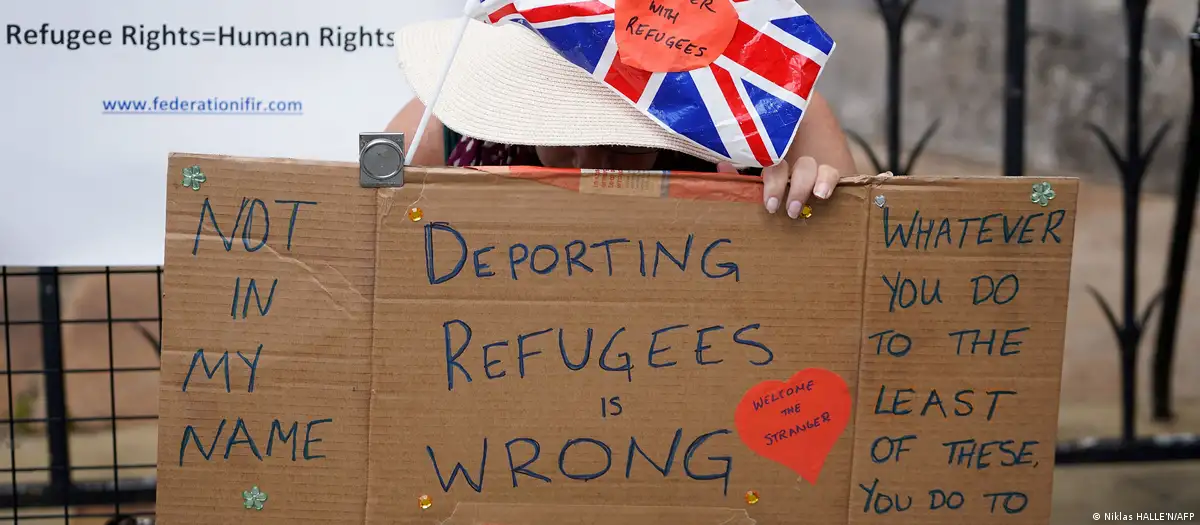 Refugee Rights=Human Rights
www.federationifir.com
WITH
REFUGEES
NOT
IN
MY
NAME
DEPORTING
REFUGEES
IS
WRONG
WELCOME
THE
STRANGER
WHATEVER
YOU DO
TO THE
LEAST
OF THESE,
YOU DO TO
© Niklas HALLE'N/AFP